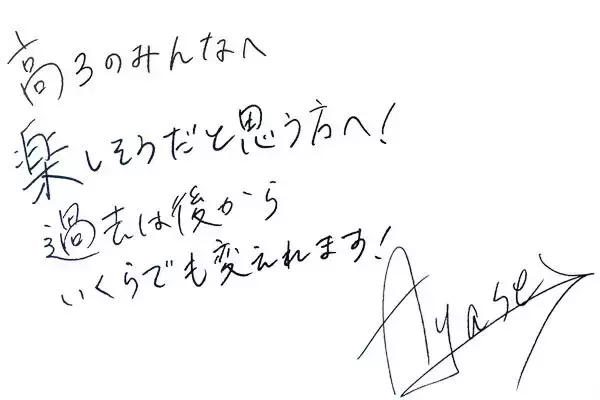 高3のみんなへ
楽しそうだと思う方へ！
過去は後から
いくらでも変えれます！
Ayase